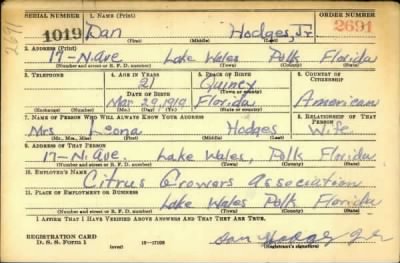 SERIAL NUMBER 1. NAME (Print) ORDER NUMBER
1019 Dan Hodges, Jr 2691
(First) (Middle) (Last)
2691
2. ADDRESS (Print)
17-N. Ave Lake Wales Polk Florida
(Number and street or R. F. D. number) (Town) (County) (State)
3. TELEPHONE 4. AGE IN YEARS 5. PLACE OF BIRTH 6. COUNTRY OF CITIZENSHIP
21 Quincy
DATE OF BIRTH (Town or county)
Mar. 29, 1919 Florida American
(Exchange) (Number) (Mo.) (Day) (Yr.) (State or country)
7. NAME OF PERSON WHO WILL ALWAYS KNOW YOUR ADDRESS 8. RELATIONSHIP OF THAT PERSON
Mrs. Leona Hodges Wife
(Mr., Mrs., Miss) (First) (Middle) (Last)
9. ADDRESS OF THAT PERSON
17-N. Ave. Lake Wales, Polk Florida
(Number and street or R. F. D. number) (Town) (County) (State)
10. EMPLOYER'S NAME
Citrus Growers Association
11. PLACE OF EMPLOYMENT OR BUSINESS
Lake Wales Polk Florida
(Number and street or R. F. D. number) (Town) (County) (State)
I AFFIRM THAT I HAVE VERIFIED ABOVE ANSWERS AND THAT THEY ARE TRUE.
REGISTRATION CARD
D. S. S. Form 1 (over) Dan Hodges Jr.
(Registrant's signature)